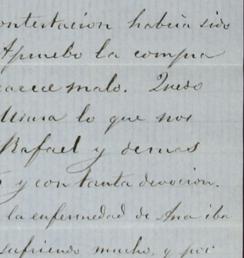 contestacion habia sido
Apruebo la compra
parece malo. Quedo
lo que nos
Rafael y demas
y con tanta devocion.
la enfermedad de Ana iba
sufriendo mucho, y por